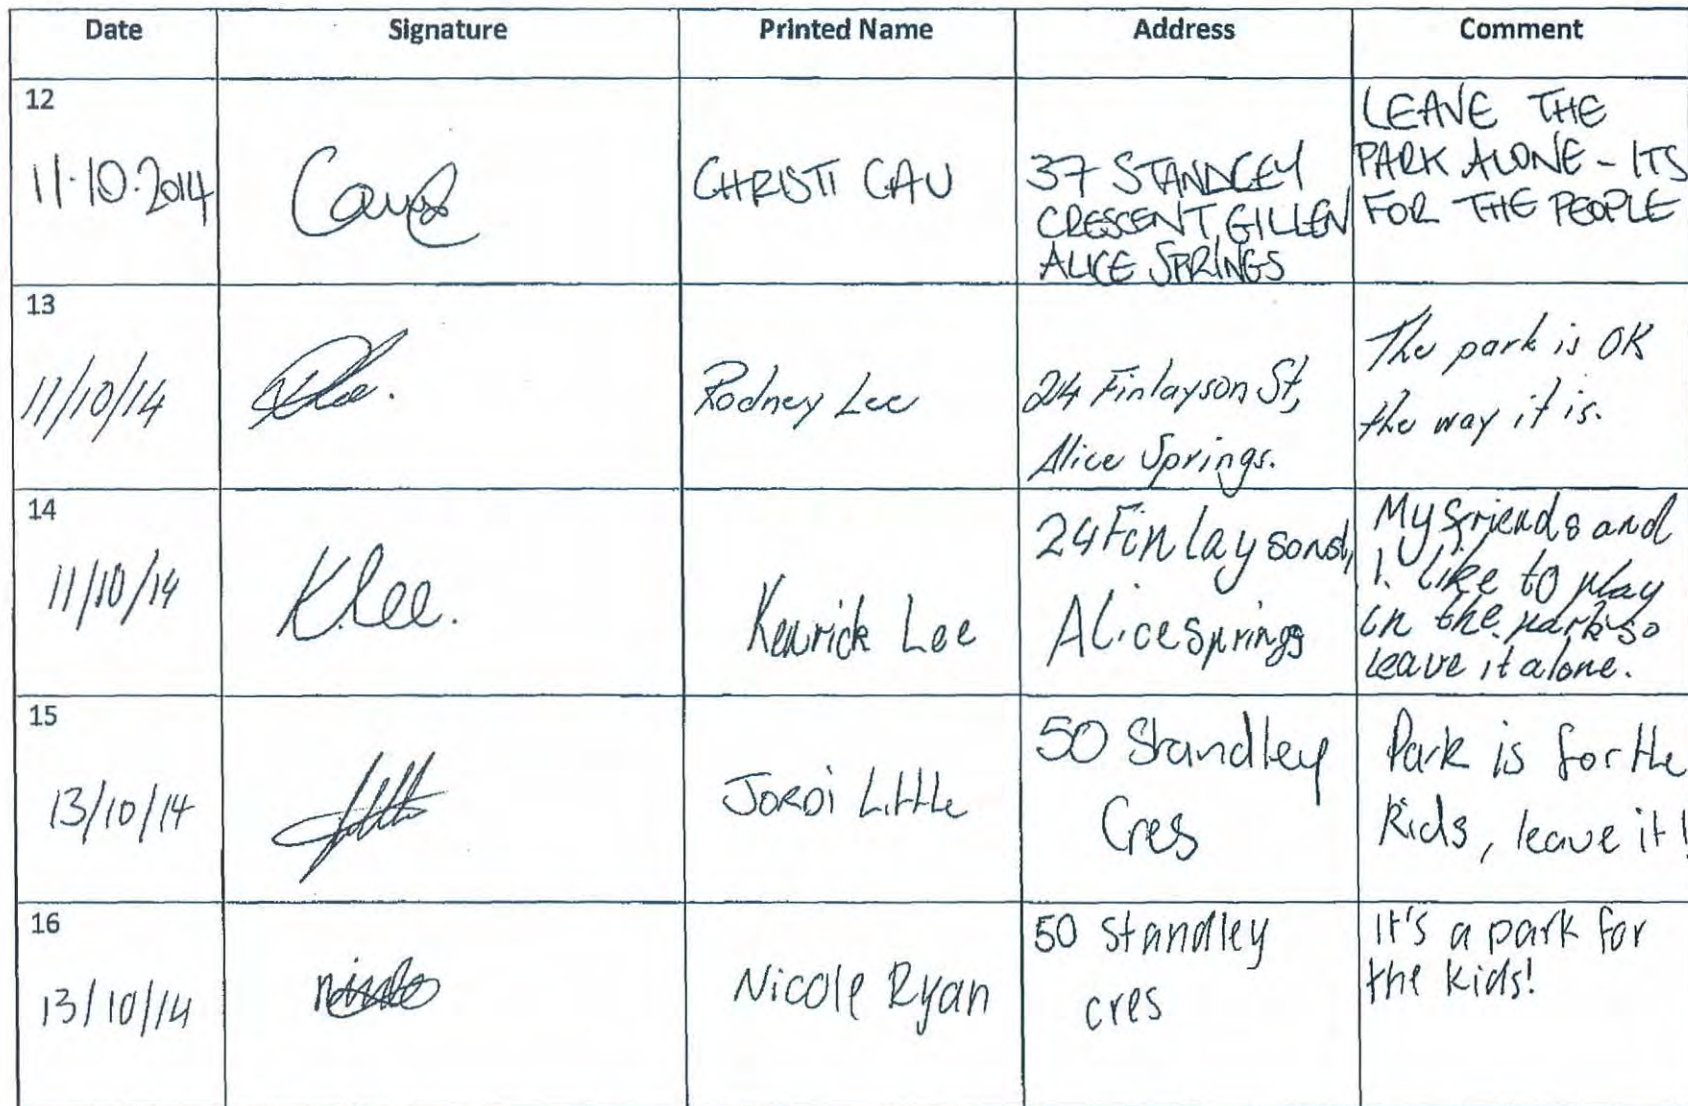 Date Signature Printed Name Address Comment
12
11.10.2014
CHRISTI CAU
37 STANDLEY
CRESCENT, GILLEN
ALICE SPRINGS
LEAVE THE
PARK ALONE - ITS
FOR THE PEOPLE
13
11/10/14
Rodney Lee
24 Finlayson St,
Alice Springs.
The park is OK
the way it is.
14
11/10/14
K.Lee.
Kenrick Lee
24 Finlayson st,
Alice springs
My friends and
I like to play
in the park so
leave it alone.
15
13/10/14
JORDI Little
50 Standley
Cres
Park is for the
Kids, leave it!
16
13/10/14
Nicole Ryan
50 standley
cres
It's a park for
the kids!